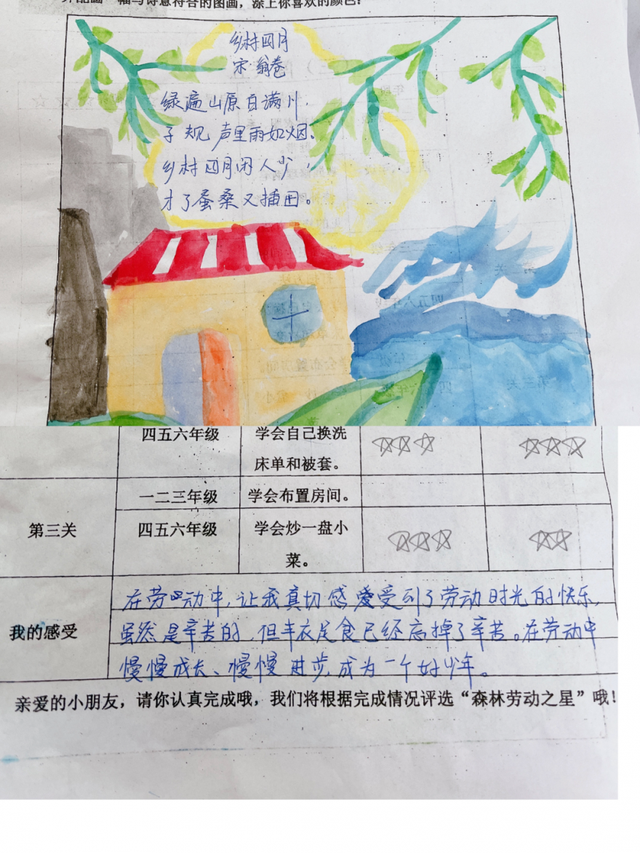 幅与诗意符合的图画，涂上你喜欢的颜色！
乡村四月
宋·翁卷
绿遍山原白满川,
子规声里雨如烟、
乡村四月闲人少
才了蚕桑又插田。
四五六年级 学会自己换洗
床单和被套。
一二三年级 学会布置房间。
第三关 四五六年级 学会炒一盘小
菜。
在劳动中,让我真切感受到了劳动时光的快乐,
我的感受 虽然是辛苦的,但丰衣足食已经忘掉了辛苦。在劳动中
慢慢成长、慢慢进步,成为一个好少年。
亲爱的小朋友，请你认真完成哦，我们将根据完成情况评选“森林劳动之星”哦！